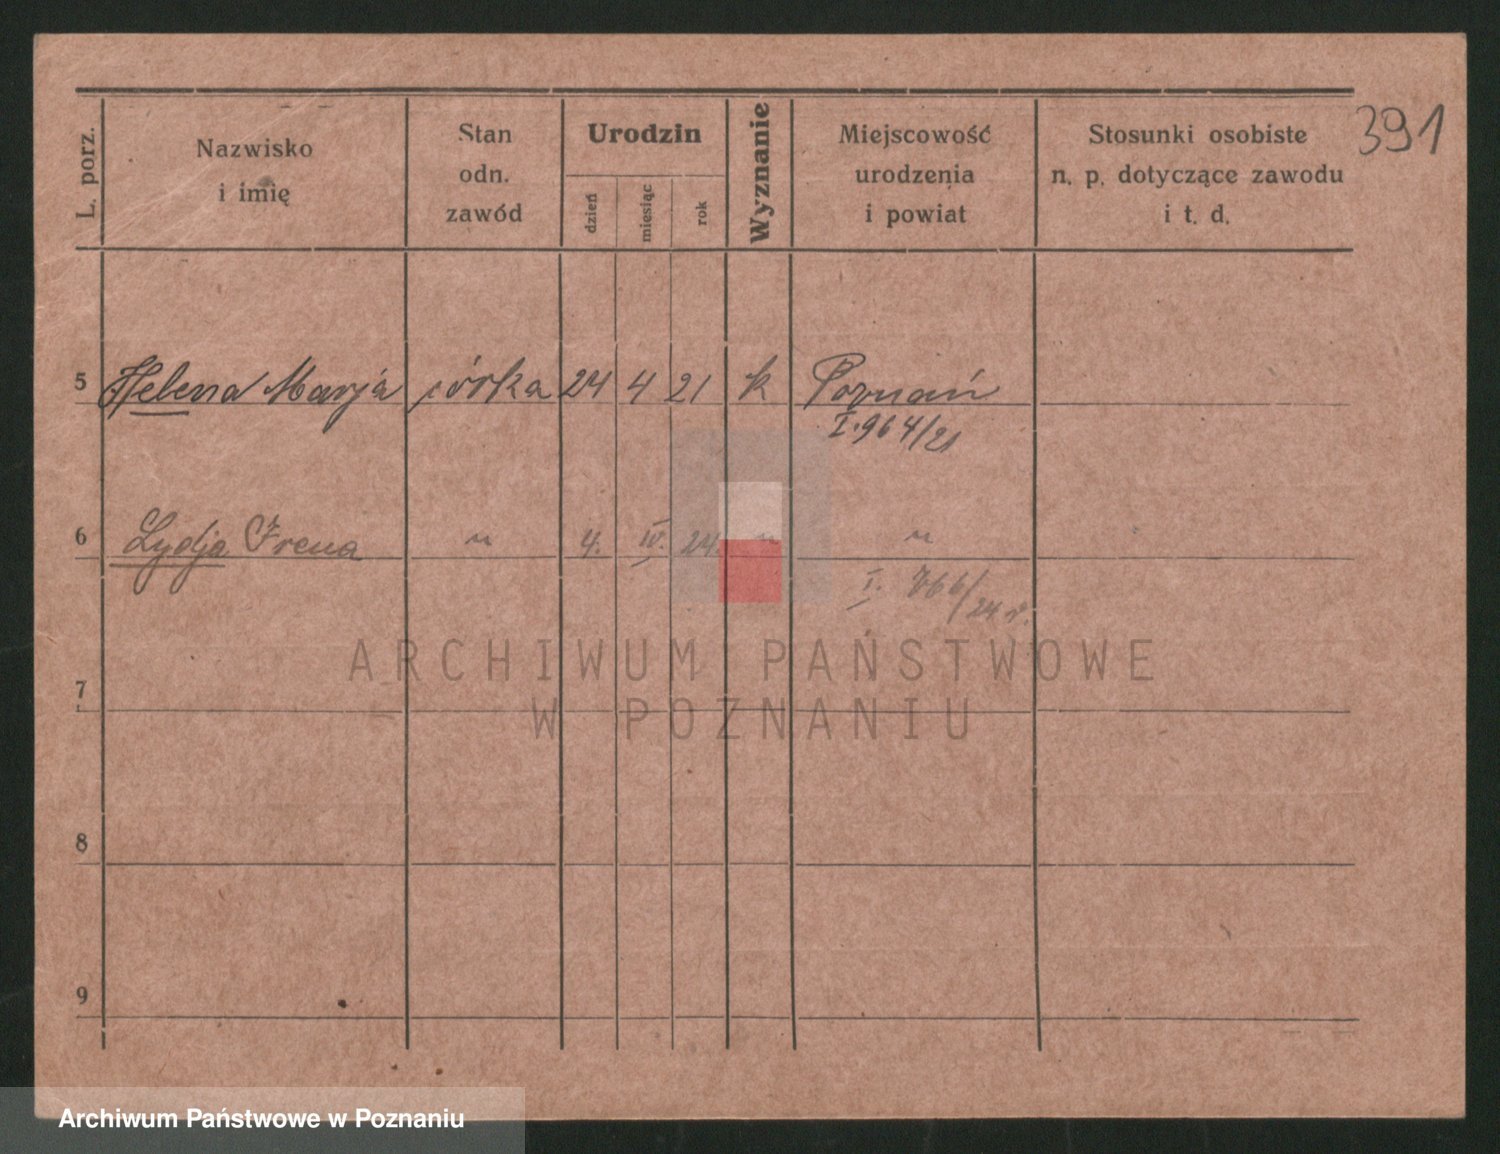 L. porz.
Nazwisko
i imię
Stan
odn.
zawód
Urodzin
dzień
miesiąc
rok
Wyznanie
Miejscowość
urodzenia
i powiat
Stosunki osobiste
n. p. dotyczące zawodu
i t. d.
391
5 Helena Marja córka 24 4 21 k Poznań
I. 964/21
6 Lydja Irena " 4. IV. 24. " "
I. 766/24 r.
ARCHIWUM PAŃSTWOWE
W POZNANIU
7
8
9
Archiwum Państwowe w Poznaniu